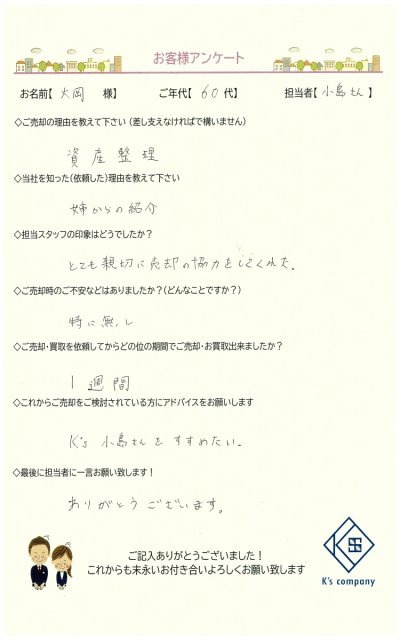 お客様アンケート
お名前【 大岡 様】 ご年代【 60 代】 担当者【 小島さん 】
◇ご売却の理由を教えて下さい（差し支えなければで構いません）
資産整理
◇当社を知った（依頼した）理由を教えて下さい
姉からの紹介
◇担当スタッフの印象はどうでしたか？
とても親切に売却の協力をしてくれた。
◇ご売却時のご不安などはありましたか？（どんなことですか？）
特に無し
◇ご売却・買取を依頼してからどの位の期間でご売却・お買取出来ましたか？
1週間
◇これからご売却をご検討されている方にアドバイスをお願いします
K's 小島さんをすすめたい。
◇最後に担当者に一言お願い致します！
ありがとうございます。
ご記入ありがとうございました！
これからも末永いお付き合いよろしくお願い致します
K's company